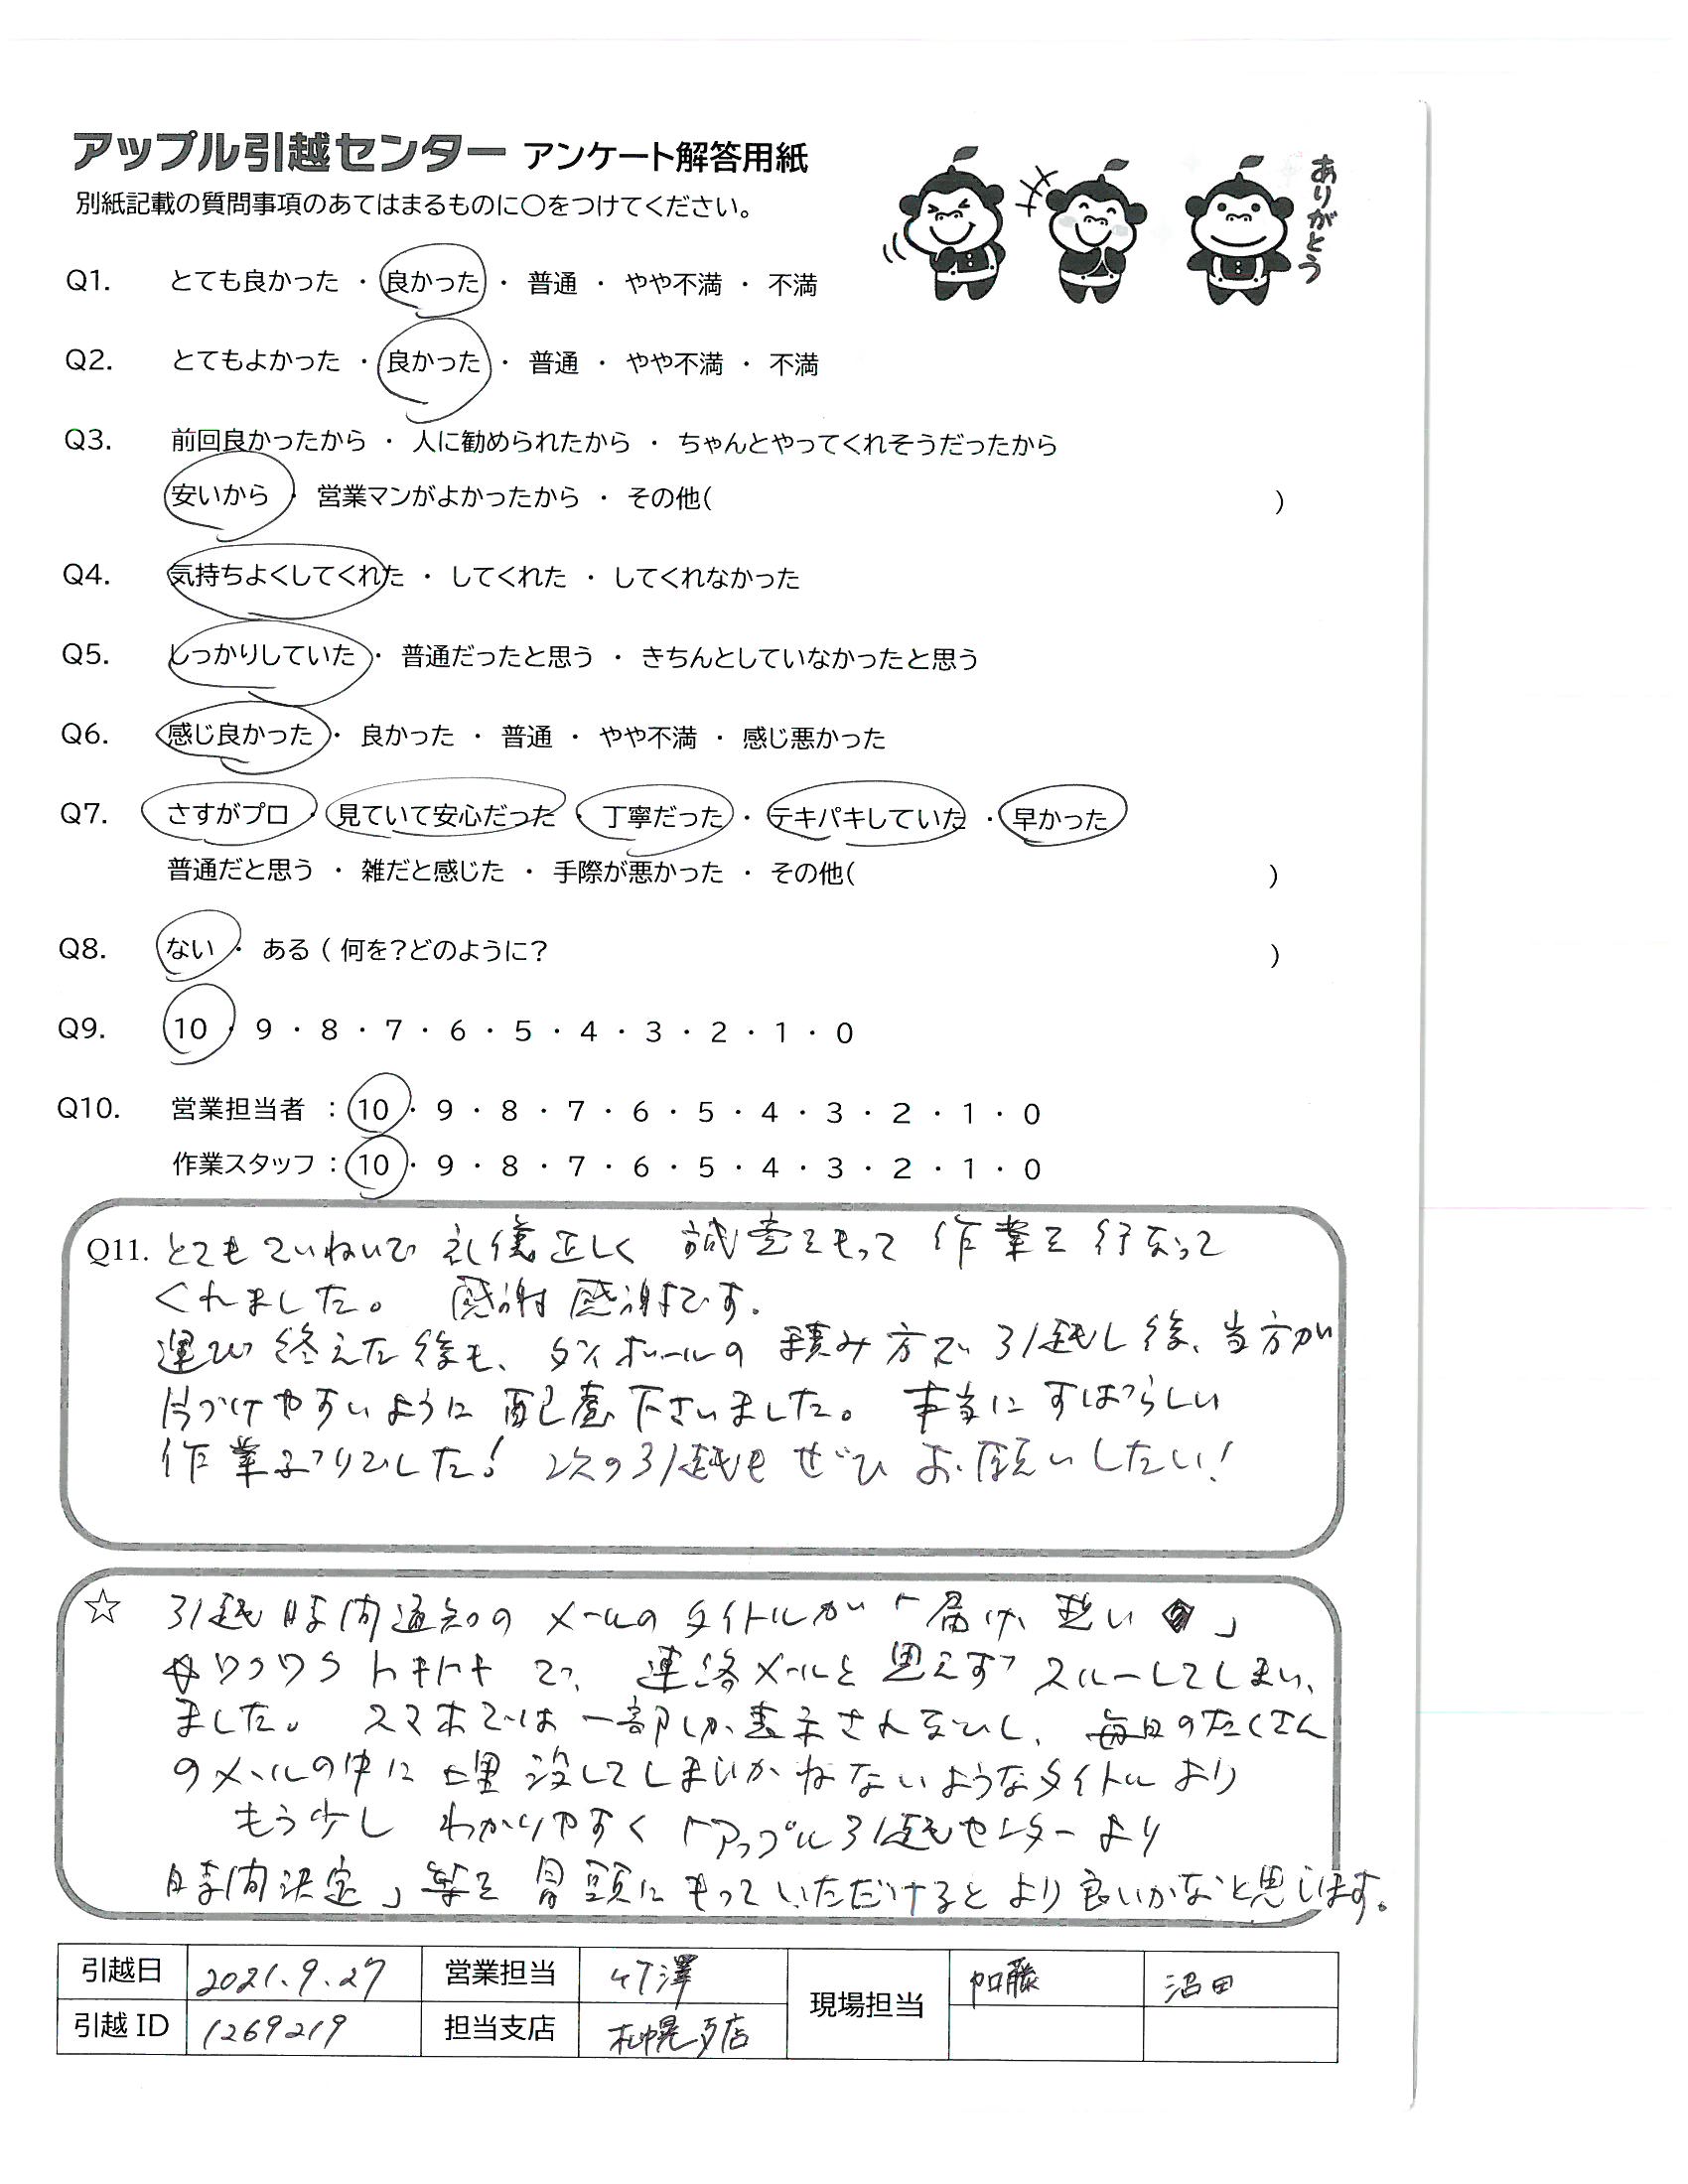 アップル引越センター アンケート解答用紙
別紙記載の質問事項のあてはまるものに〇をつけてください。
ありがとう
Q1. とても良かった ・ 良かった ・ 普通 ・ やや不満 ・ 不満
Q2. とてもよかった ・ 良かった ・ 普通 ・ やや不満 ・ 不満
Q3. 前回良かったから ・ 人に勧められたから ・ ちゃんとやってくれそうだったから
安いから ・ 営業マンがよかったから ・ その他( )
Q4. 気持ちよくしてくれた ・ してくれた ・ してくれなかった
Q5. しっかりしていた ・ 普通だったと思う ・ きちんとしていなかったと思う
Q6. 感じ良かった ・ 良かった ・ 普通 ・ やや不満 ・ 感じ悪かった
Q7. さすがプロ ・ 見ていて安心だった ・ 丁寧だった ・ テキパキしていた ・ 早かった
普通だと思う ・ 雑だと感じた ・ 手際が悪かった ・ その他( )
Q8. ない ・ ある ( 何を?どのように? )
Q9. 10 ・ 9 ・ 8 ・ 7 ・ 6 ・ 5 ・ 4 ・ 3 ・ 2 ・ 1 ・ 0
Q10. 営業担当者 : 10 ・ 9 ・ 8 ・ 7 ・ 6 ・ 5 ・ 4 ・ 3 ・ 2 ・ 1 ・ 0
作業スタッフ : 10 ・ 9 ・ 8 ・ 7 ・ 6 ・ 5 ・ 4 ・ 3 ・ 2 ・ 1 ・ 0
Q11. とてもていねいで 礼儀正しく 誠意をもって 作業を行なって
くれました。 感謝感謝です。
運び終えた後も、ダンボールの積み方で引越し後、当方が
片づけやすいように配慮下さいました。 本当にすばらしい
作業ぶりでした! 次の引越もぜひお願いしたい!
☆ 引越時間通知のメールのタイトルが「届け、想い 」
ワクワクドキドキ で、連絡メールと思えずスルーしてしまい
ました。 スマホでは一部しか表示されないし、毎日のたくさん
のメールの中に埋没してしまいかねないようなタイトルより
もう少し わかりやすく「アップル引越センターより
時間決定」等を冒頭にもっていただけるとより良いかなと思います。
引越日 2021.9.27 営業担当 竹澤 現場担当 加藤 沼田
引越ID 1269219 担当支店 札幌支店